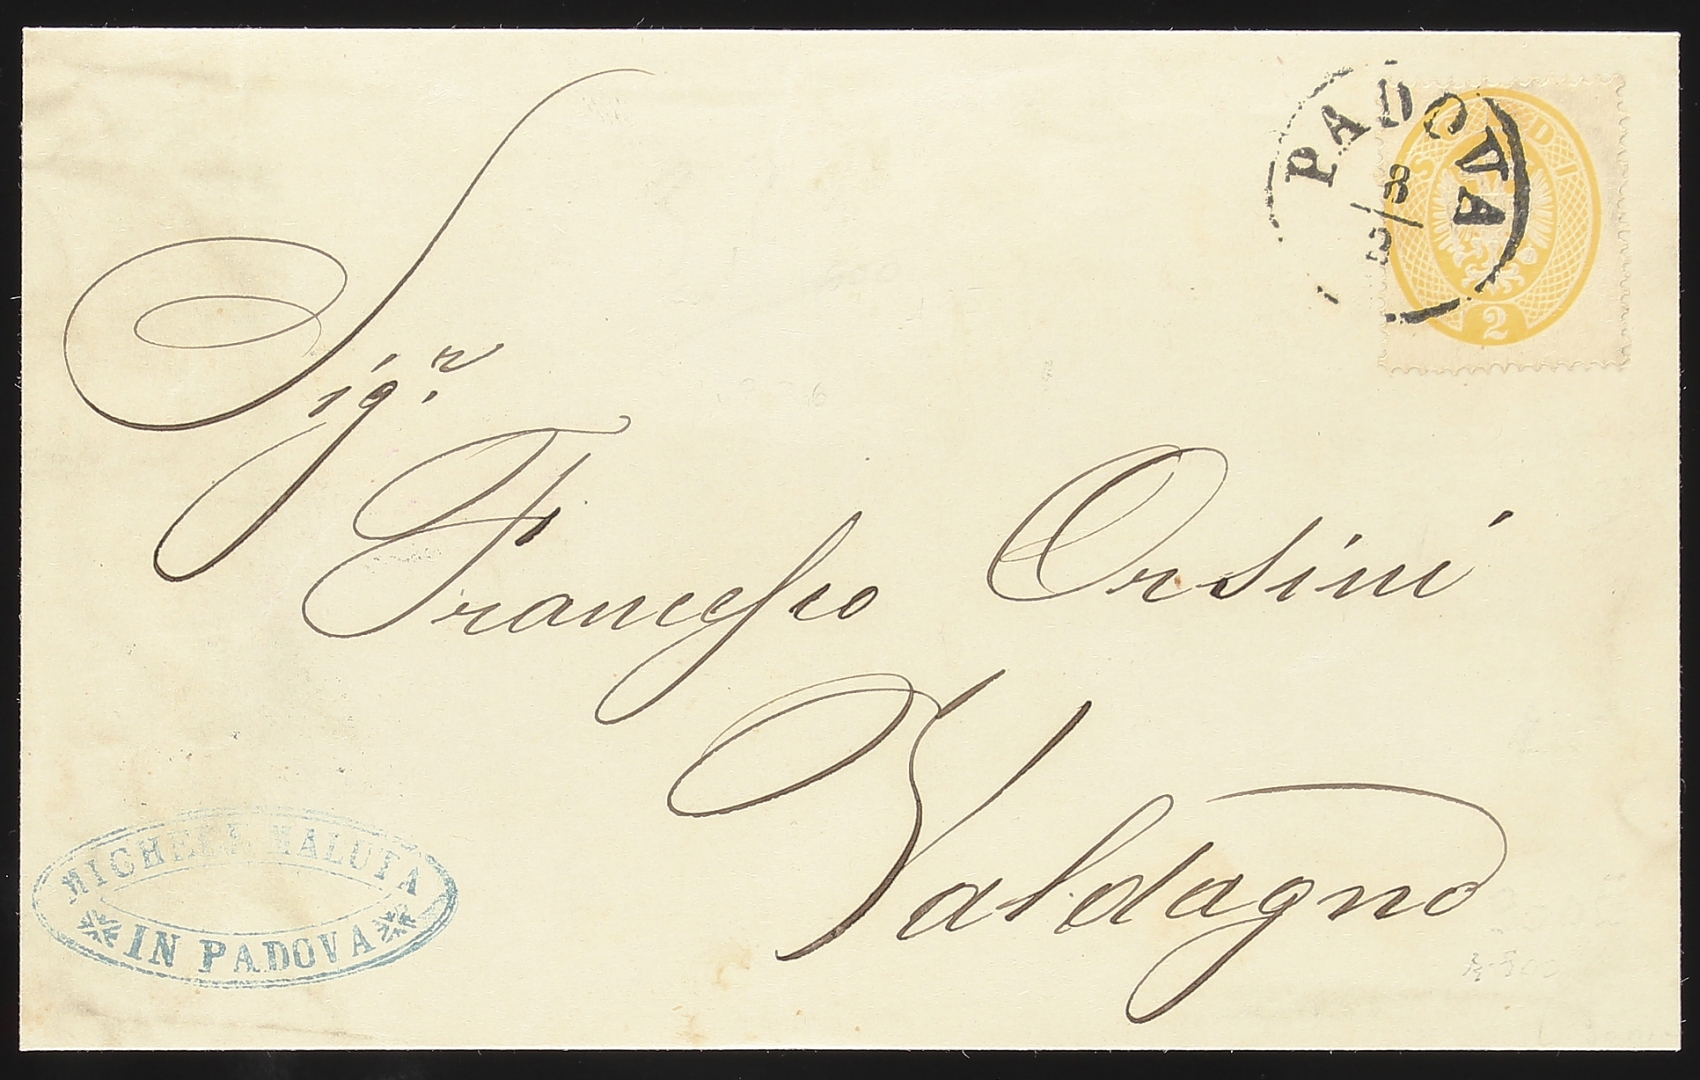 PADOVA
8/3
SOLDI
2
Sigr.
Francesco Orsini
Valdagno
MICHELE MALUTA
IN PADOVA